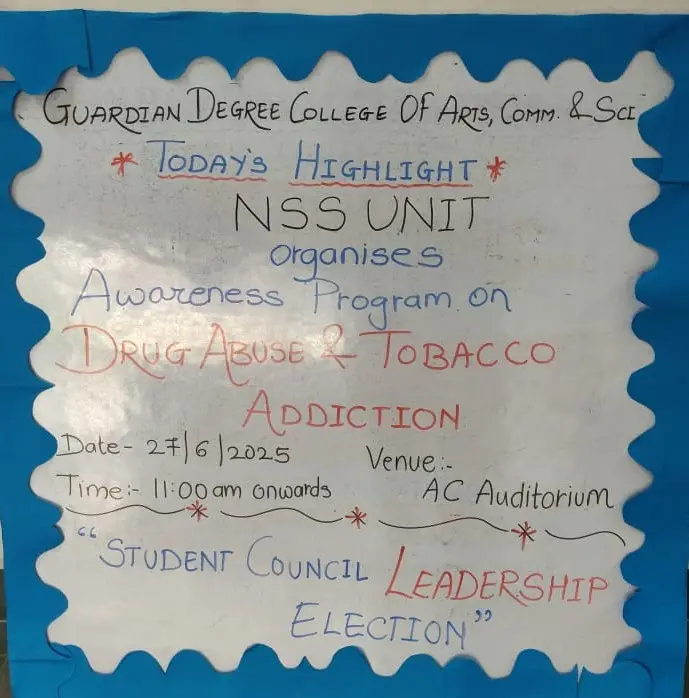 GUARDIAN DEGREE COLLEGE OF ARTS, COMM. & SCI
* TODAY'S HIGHLIGHT *
NSS UNIT
organises
Awareness Program on
DRUG ABUSE & TOBACCO
ADDICTION
Date- 27/6/2025
Time:- 11:00 am onwards
Venue:-
AC Auditorium
"STUDENT COUNCIL LEADERSHIP
ELECTION"